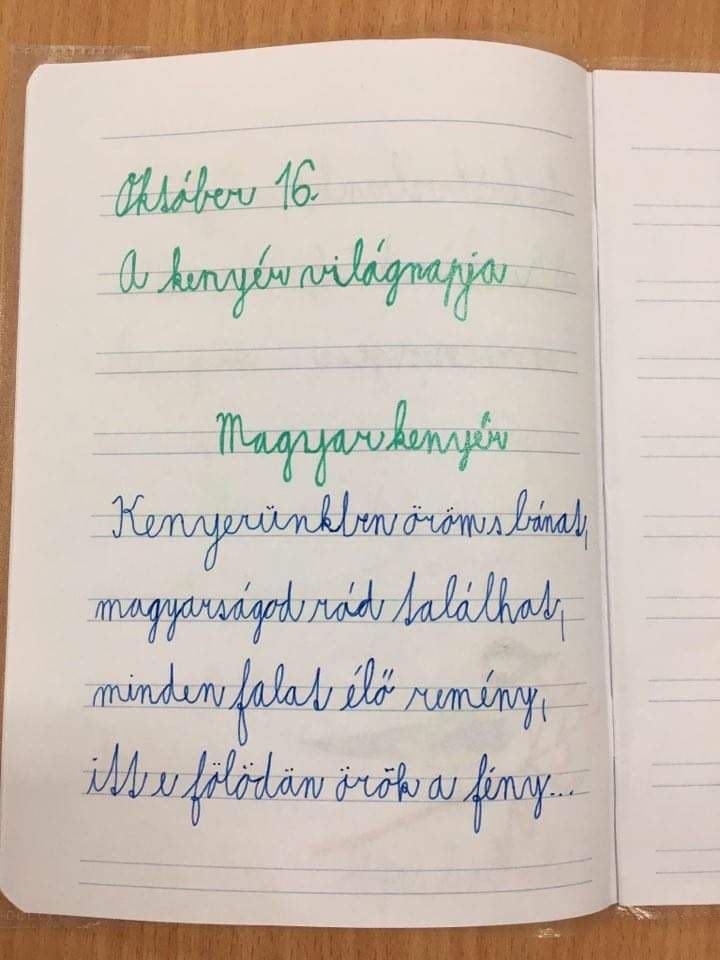 Október 16.
A kenyér világnapja
Magyar kenyér
Kenyerünkben öröm s bánat,
magyarságod rád találhat,
minden falat élő remény,
itt e fölödän örök a fény...